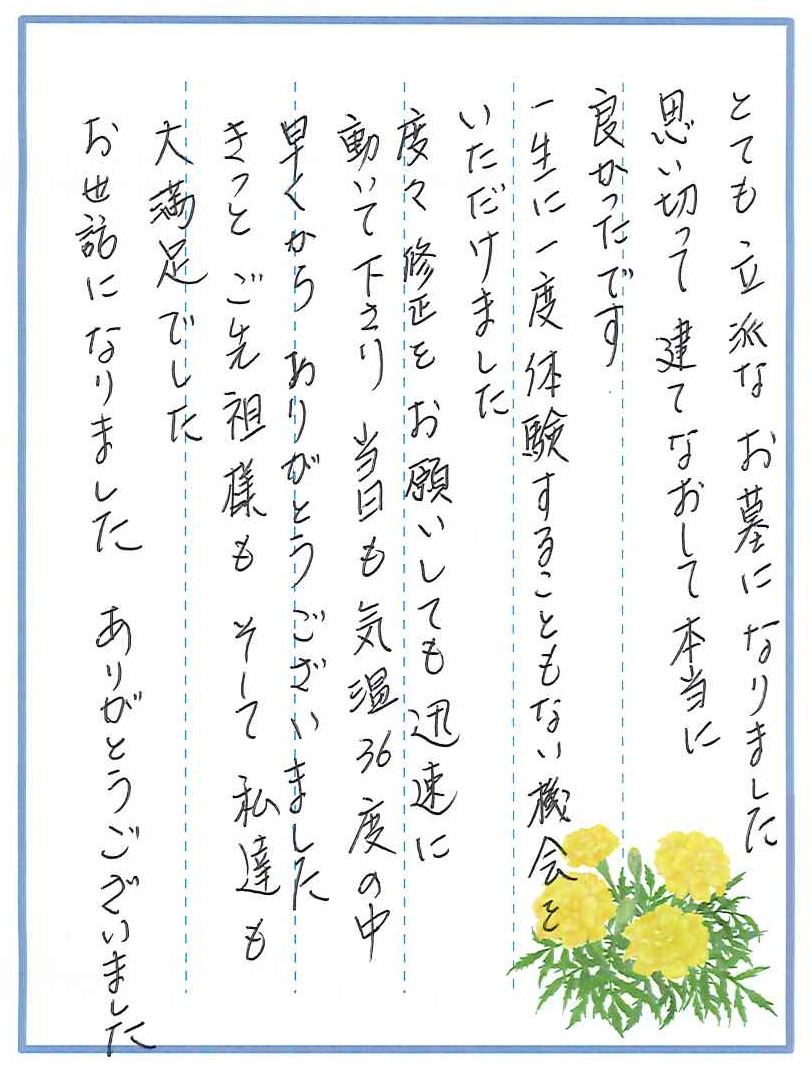 とても立派なお墓になりました
思い切って建てなおして本当に
良かったです
一生に一度体験することもない機会を
いただけました
度々修正をお願いしても迅速に
動いて下さり当日も気温36度の中
早くからありがとうございました
きっとご先祖様もそして私達も
大満足でした
お世話になりました ありがとうございました